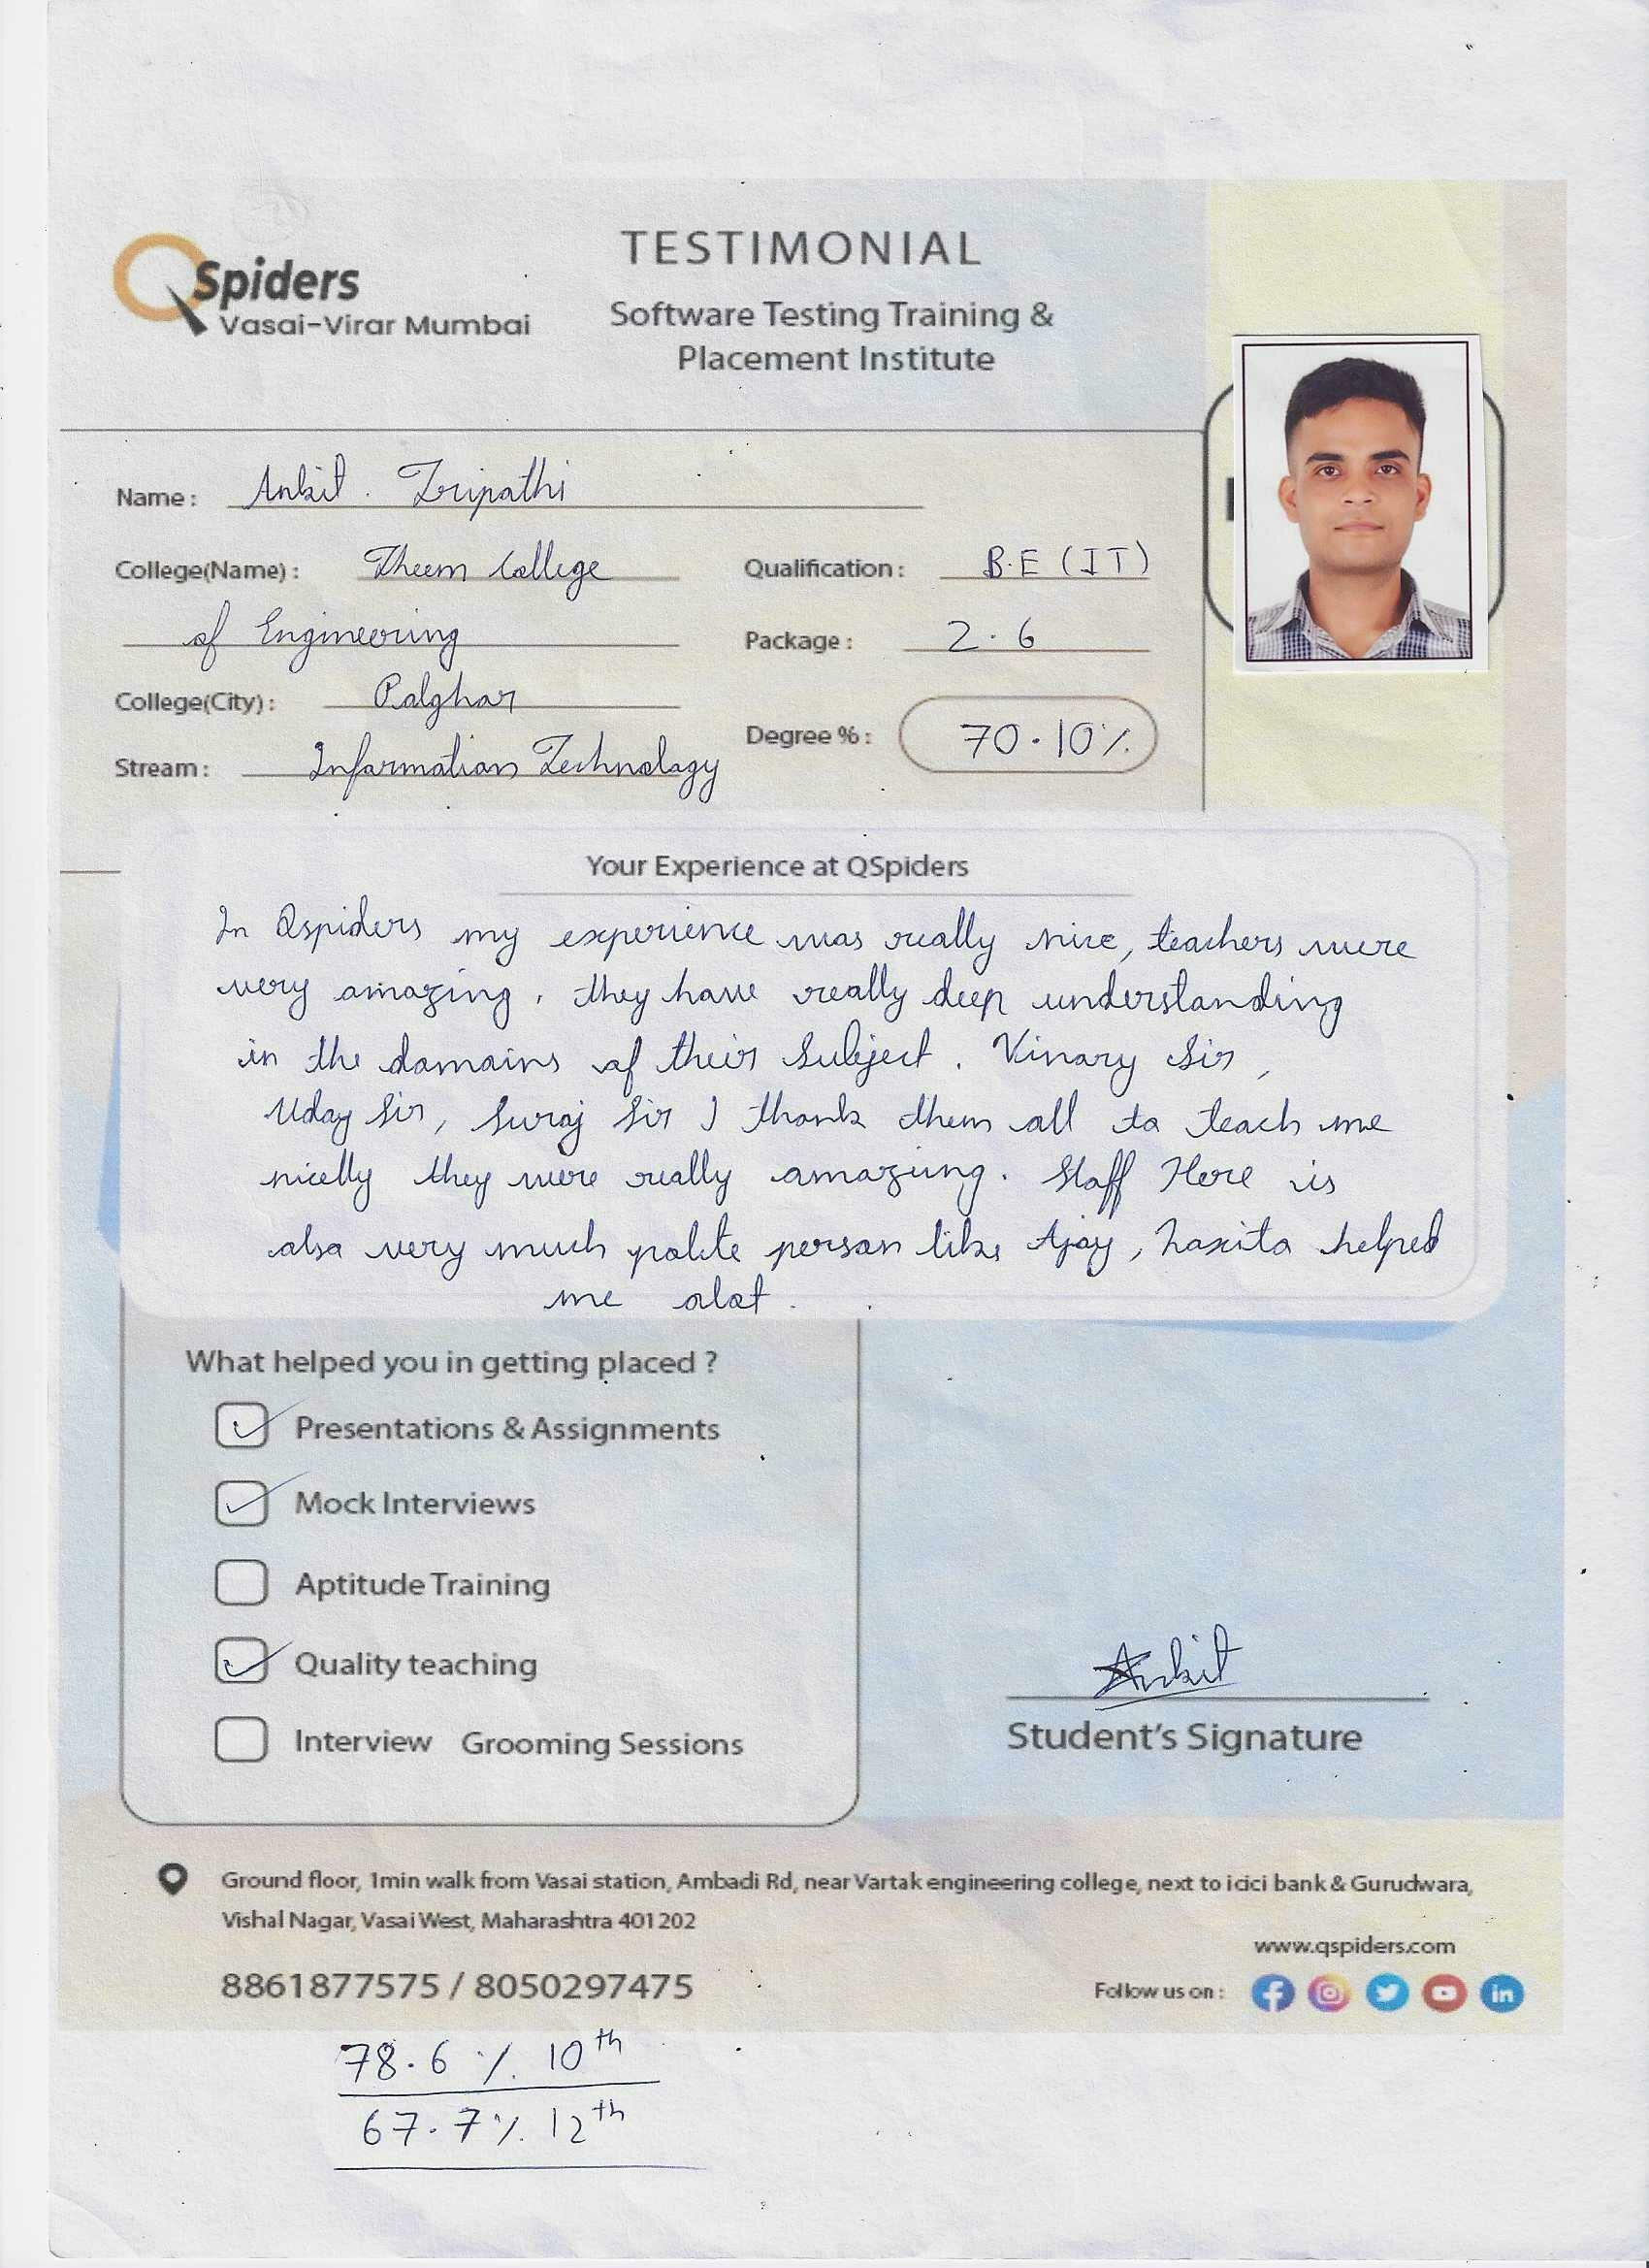 QSpiders
Vasai-Virar Mumbai
TESTIMONIAL
Software Testing Training &
Placement Institute
Name : Ankit . Tripathi
College(Name) : Theem College
of Engineering
College(City) : Palghar
Stream : Information Technology
Qualification : B.E (IT)
Package : 2.6
Degree % : 70.10%
Your Experience at QSpiders
In Qspiders my experience was really nice, teachers were
very amazing. they have really deep understanding
in the domains of their Subject. Vinary Sir,
Uday Sir, Suraj Sir I thank them all to teach me
nicelly they were really amazing. Staff Here is
also very much polite person like Ajay, Laxita helped
me alot.
What helped you in getting placed ?
Presentations & Assignments
Mock Interviews
Aptitude Training
Quality teaching
Interview Grooming Sessions
Ankit
Student's Signature
Ground floor, 1min walk from Vasai station, Ambadi Rd, near Vartak engineering college, next to icici bank & Gurudwara,
Vishal Nagar, Vasai West, Maharashtra 401202
www.qspiders.com
8861877575 / 8050297475
Follow us on :
78.6 % 10th
67.7% 12th